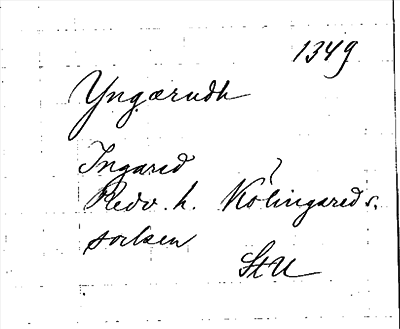 1349
Yngærudh
Ingared
Redv. h. Kölingareds.
socken
StU